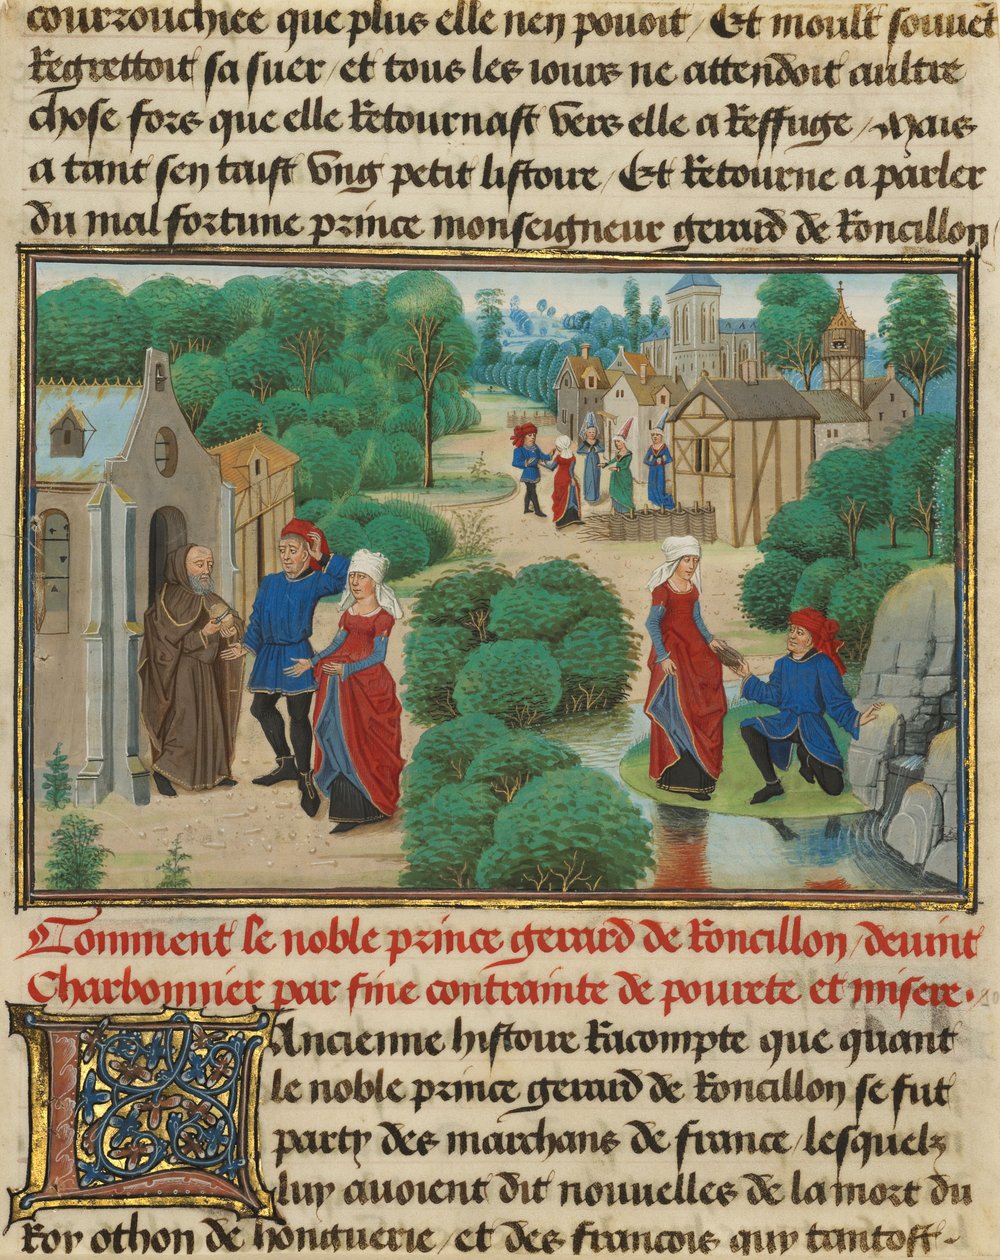 courrouchiee que plus elle nen pouoit / Et moult souuet
Regrettoit sa suer / et tous les iours ne attendoit aultre
chose fors que elle Retournast vers elle a Reffuge / Mais
a tant sen taist vng petit listoire / Et Retourne a parler
du mal fortune prince monseigneur gerard de Roncillon /
Comment le noble prince gerard de Roncillon / deuint
Charbonnier par fine contrainte de pourete et misere .
LAncienne histoire Racompte que quant
le noble prince gerard de Roncillon se fut
party des marchans de france / lesquelz
luy auoient dit nouuelles de la mort du
Roy othon de honguerie / et des francois quy tantost -